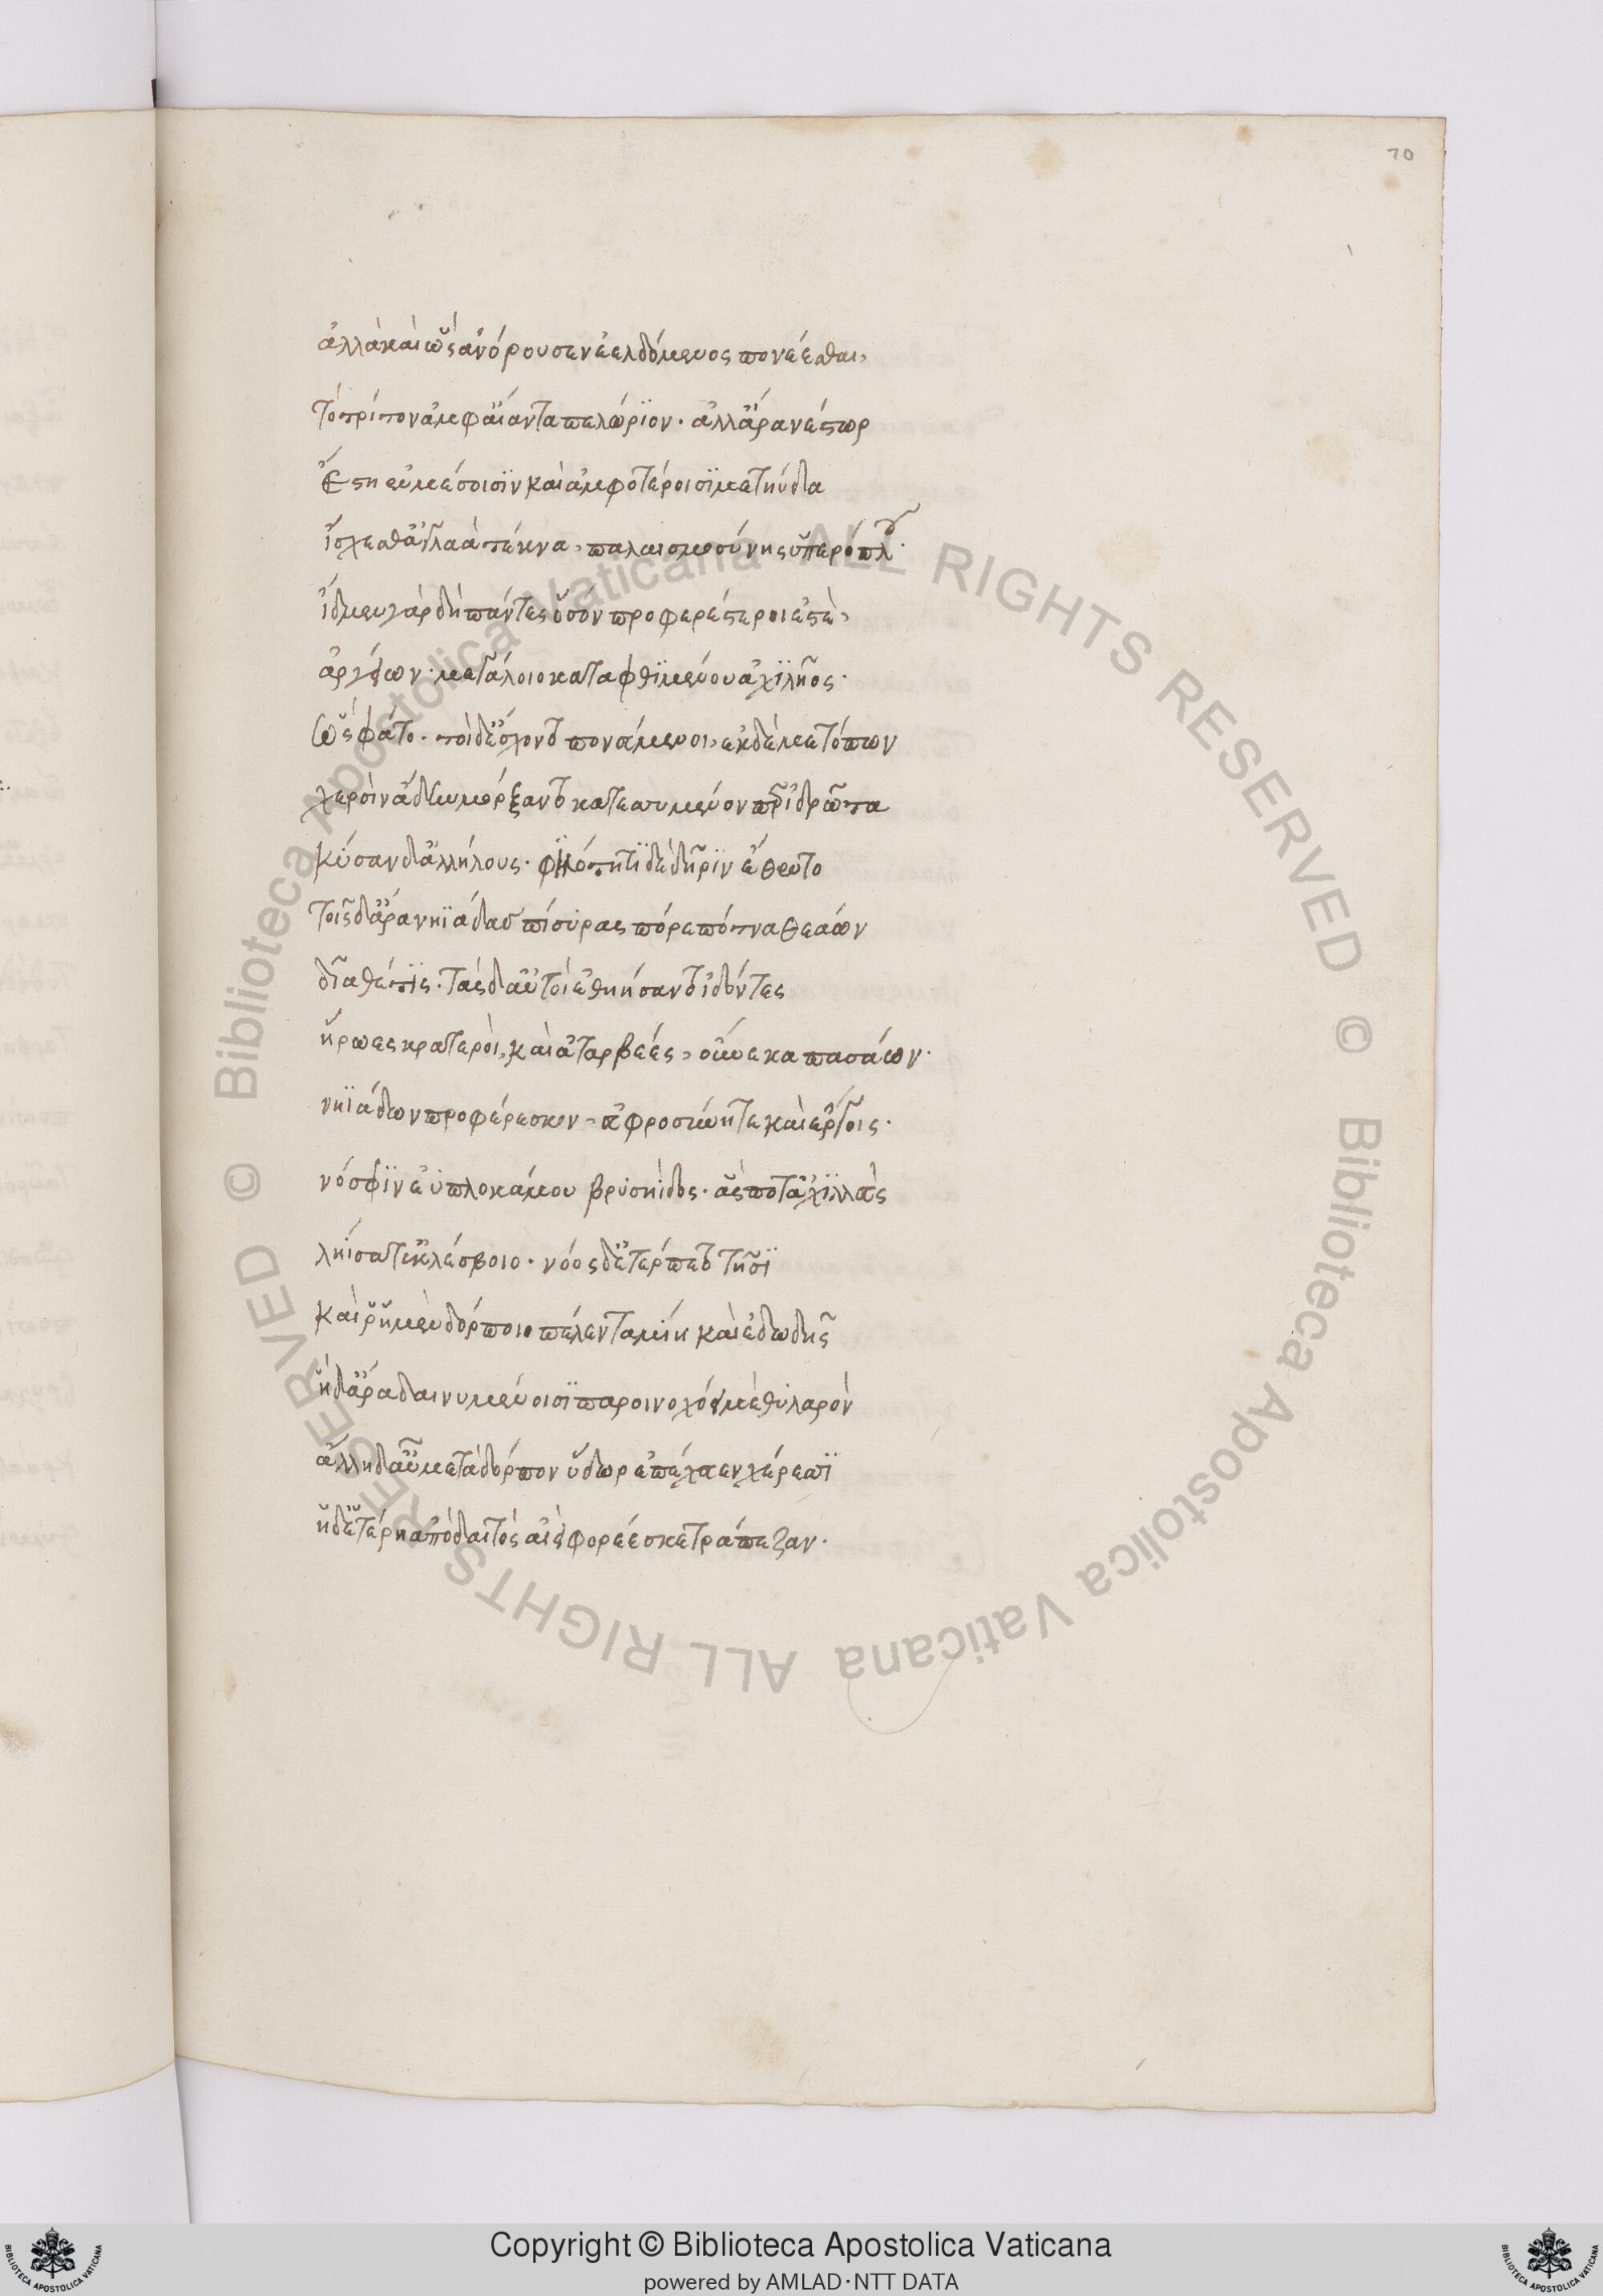 70
ἀλλὰ καὶ ὧς ἀνόρουσεν ἐελδόμενος πονέεσθαι,
τὸ τρίτον ἀμφ' αἴαντα πελώριον· ἀλλ' ἄρα νέστωρ
ἔστη ἐν μέσοισιν καὶ ἀμφοτέροισι μετηύδα
ἴσχεσθ' ἀγλαὰ τέκνα, παλαισμοσύνης ὑπερόπλου·
ἴδμεν γὰρ δὴ πάντες ὅσον προφερέστεροι ἐστὲ,
ἀργείων· μεγάλοιο καταφθιμένου ἀχιλῆος·
ὣς φάτο· τοὶ δ' ἔσχοντο πονεύμενοι, ἐκ δὲ μετώπων
χερσὶν ἄδην μόρξαντο κατεσσυμένον περ ἱδρῶτα
κύσαν δ' ἀλλήλους· φιλότητι δὲ δῆριν ἔθεντο
τοῖς δ' ἄρα νηϊάδας πίσυρας πόρε πότνα θεάων
δῖα θέτις· τὰς δ' αὐτοὶ ἐθηήσαντο ἰδόντες
ἥρωες κρατεροὶ, καὶ ἀταρβέες, οὕνεκα πασάων·
νηϊάδων προφέρεσκον, ἀφροσύνη τε καὶ ἔργοις·
νόσφιν ἐϋπλοκάμου βρυσηίδος· ἅς ποτ' ἀχιλλεὺς
ληίσατ' ἐκ λέσβοιο· νόος δ' ἐτέρπετο τῇσι
καί ῥ' ἡ μὲν δόρποιο πέλεν ταμίη καὶ ἐδωδῆς
ἡ δ' ἄρα δαινυμένοισι παροινοχόει μέθυ λαρὸν
ἄλλη δ' αὖ μετὰ δόρπον ὕδωρ ἐπέχευεν χέρεσσι
ἡ δ' ἑτέρη ἀπὸ δαιτὸς ἀεὶ φορέεσκε τράπεζαν·
© Biblioteca Apostolica Vaticana ALL RIGHTS RESERVED © Biblioteca Apostolica Vaticana ALL RIGHTS RESERVED
BIBLIOTECA APOSTOLICA VATICANA
Copyright © Biblioteca Apostolica Vaticana
powered by AMLAD·NTT DATA
BIBLIOTECA APOSTOLICA VATICANA